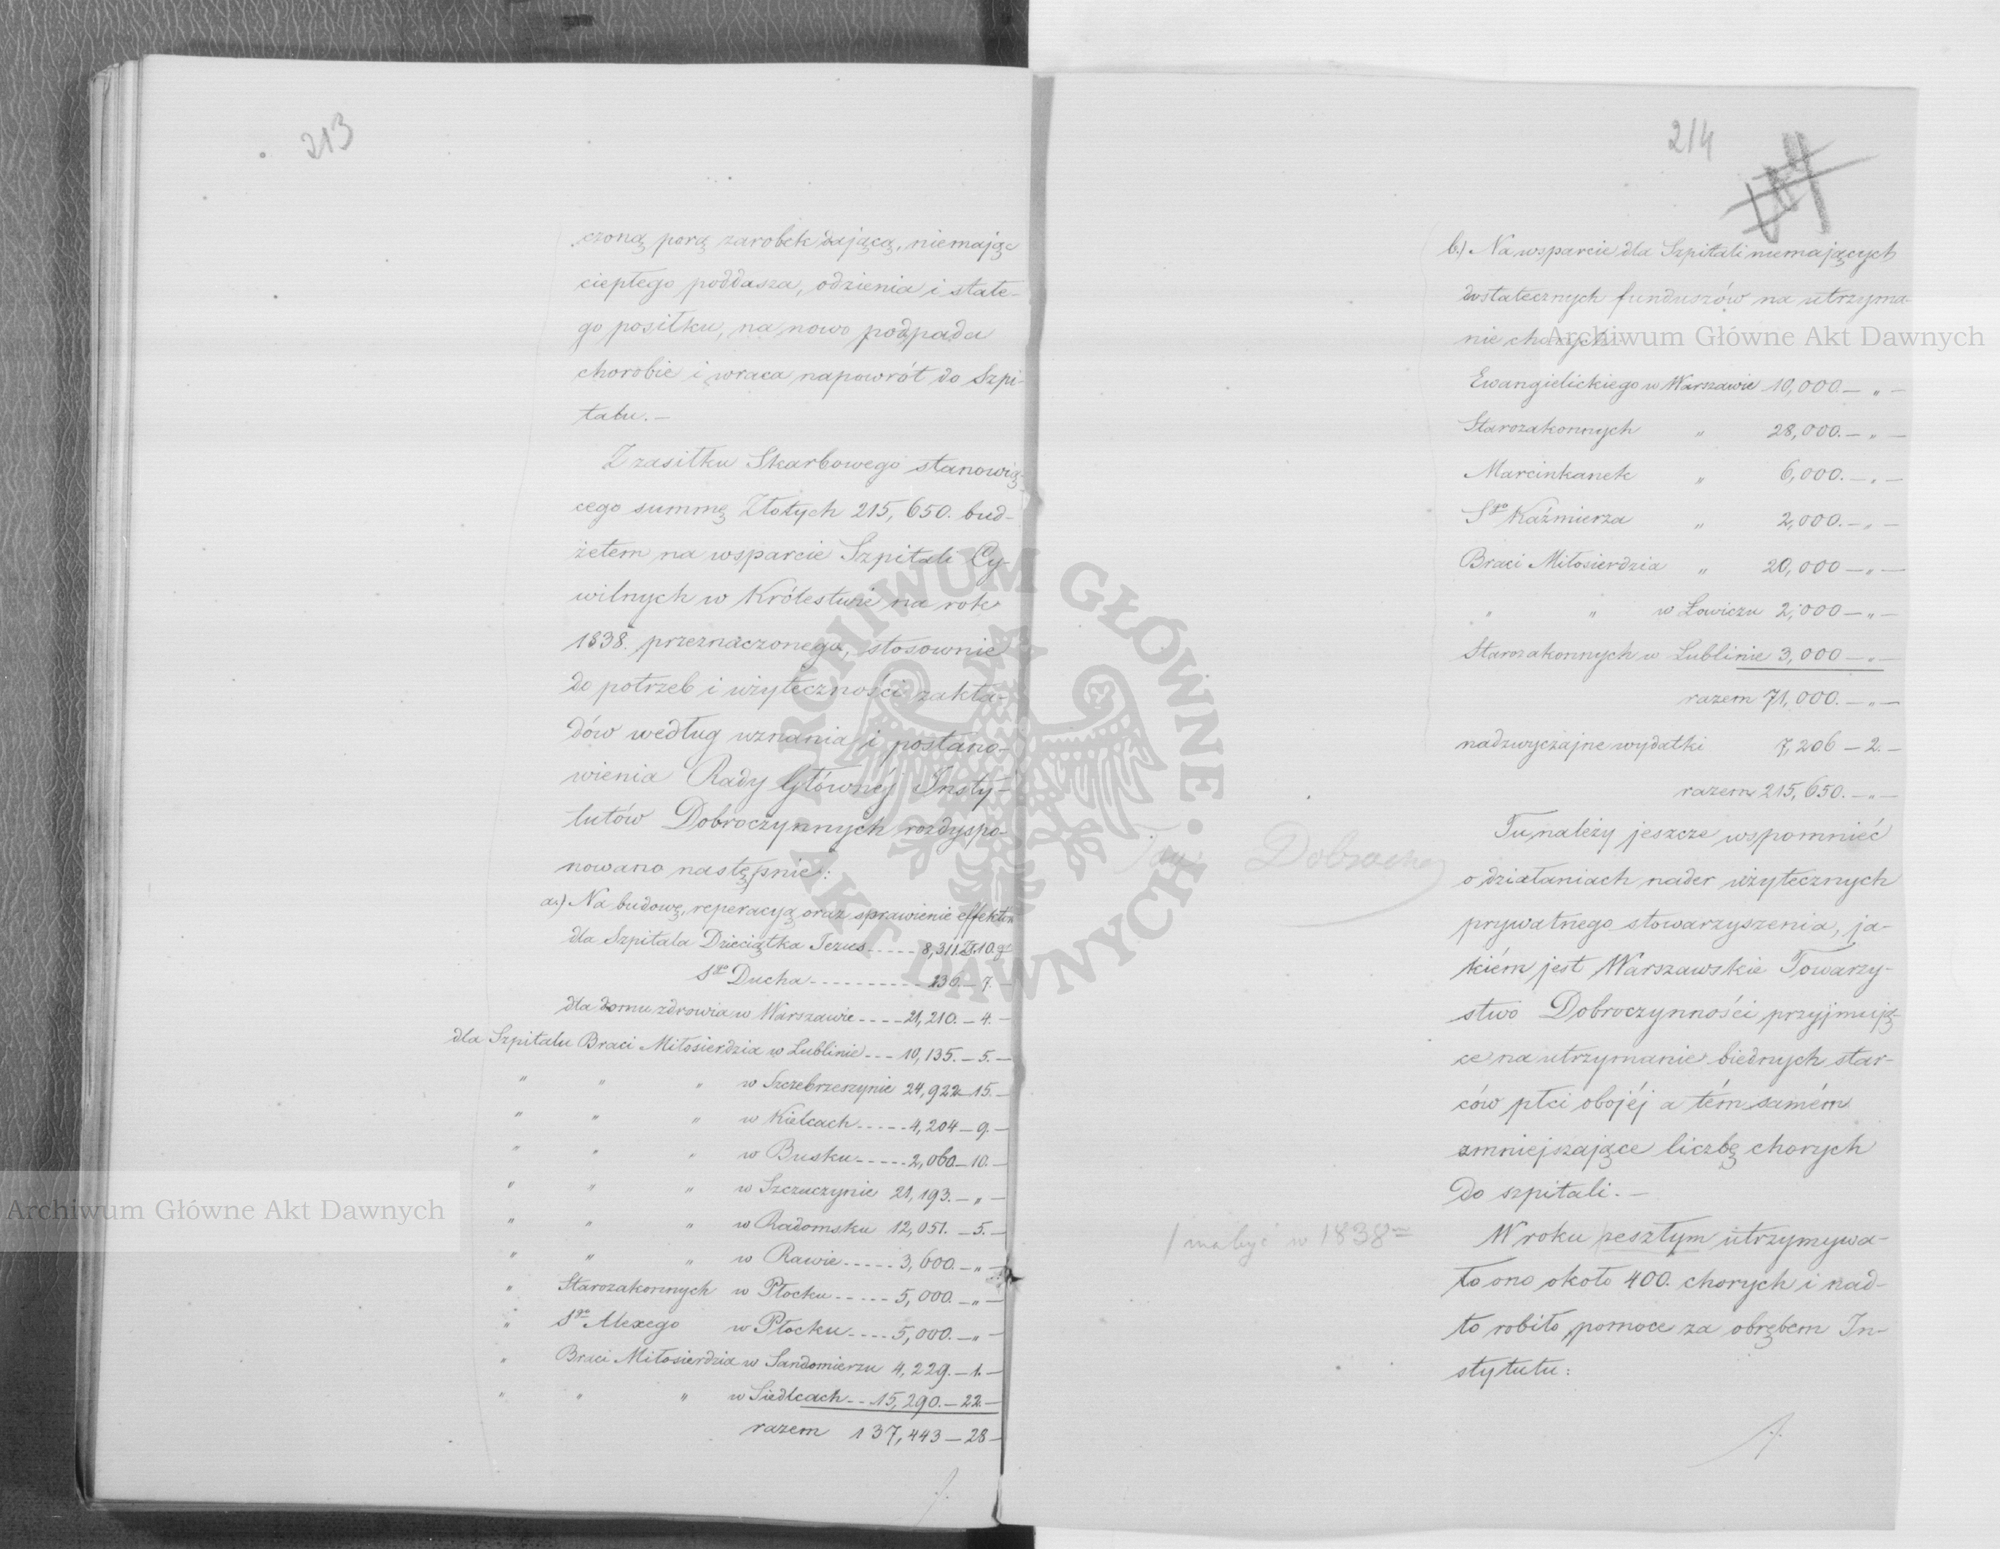 213
czoną porą zarobek dającą, niemając
ciepłego poddasza, odzienia i stałe-
go posiłku, na nowo podpada
chorobie i wraca napowrót do Szpi-
talu.—
Z zasiłku Skarbowego stanowią-
cego summę Złotych 215,650. bud-
żetem na wsparcie Szpitali Cy-
wilnych w Królestwie na rok
1838. przeznaczonego, stosownie
do potrzeb i użyteczności zakła-
dów według uznania i postano-
wienia Rady Głównéj Insty-
tutów Dobroczynnych rozdyspo-
nowano następnie:
a.) Na budowę, reperacyą oraz sprawienie effektów
dla Szpitala Dzieciątka Jezus..... 8,311. Zł. 10. gr
Sgo Ducha ........... 230.—7.—
dla domu zdrowia w Warszawie .... 21,210.—4.—
dla Szpitalu Braci Miłosierdzia w Lublinie ... 10,135.—5.—
" " " w Szczebrzeszynie 24,922—15.—
" " " w Kielcach ..... 4,204—9.—
" " " w Busku ..... 2,060—10.—
" " " w Szczuczynie 21,193.—"—
" " " w Radomsku 12,051.—5.—
" " " w Rawie ..... 3,600.—"—
" Starozakonnych w Płocku ..... 5,000.—"—
" Sgo Alexego w Płocku .... 5,000.—"—
" Braci Miłosierdzia w Sandomierzu 4,229.—1.—
" " " w Siedlcach .. 15,290.—22.—
razem 137,443—28—
214
b.) Na wsparcie dla Szpitali niemających
dostatecznych funduszów na utrzyma-
nie chorych
Ewangielickiego w Warszawie 10,000.—"—
Starozakonnych " 28,000.—"—
Marcinkanek " 6,000.—"—
Sgo Kaźmierza " 2,000.—"—
Braci Miłosierdzia " 20,000—"—
" " w Łowiczu 2,000—"—
Starozakonnych w Lublinie 3,000—"—
razem 71,000.—"—
nadzwyczajne wydatki 7,206—2.—
razem 215,650.—"—
Tu należy jeszcze wspomnieć
o działaniach nader użytecznych
prywatnego stowarzyszenia, ja-
kiém jest Warszawskie Towarzy-
stwo Dobroczynności przyjmują-
ce na utrzymanie biednych star-
ców płci obojéj a tém samém
zmniejszające liczbę chorych
do szpitali.—
W roku zeszłym utrzymywa-
ło ono około 400. chorych i nad-
to robiło pomoce za obrębem In-
stytutu:
Tow. Dobroczy
/ ma być w 1838m
ARCHIWUM GŁÓWNE AKT DAWNYCH W WARSZAWIE
Archiwum Główne Akt Dawnych
Archiwum Główne Akt Dawnych